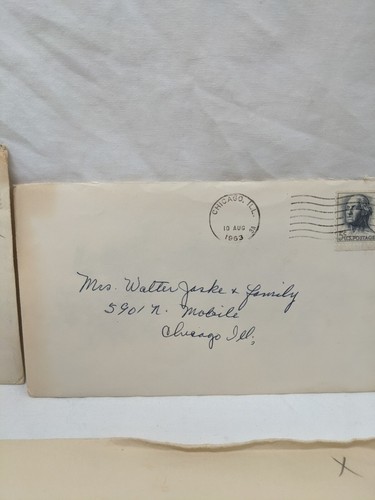 CHICAGO, ILL.
19 AUG
1963
5¢ U.S. POSTAGE
Mrs. Walter Jaske & family
5901 N. Mobile
Chicago Ill,
X